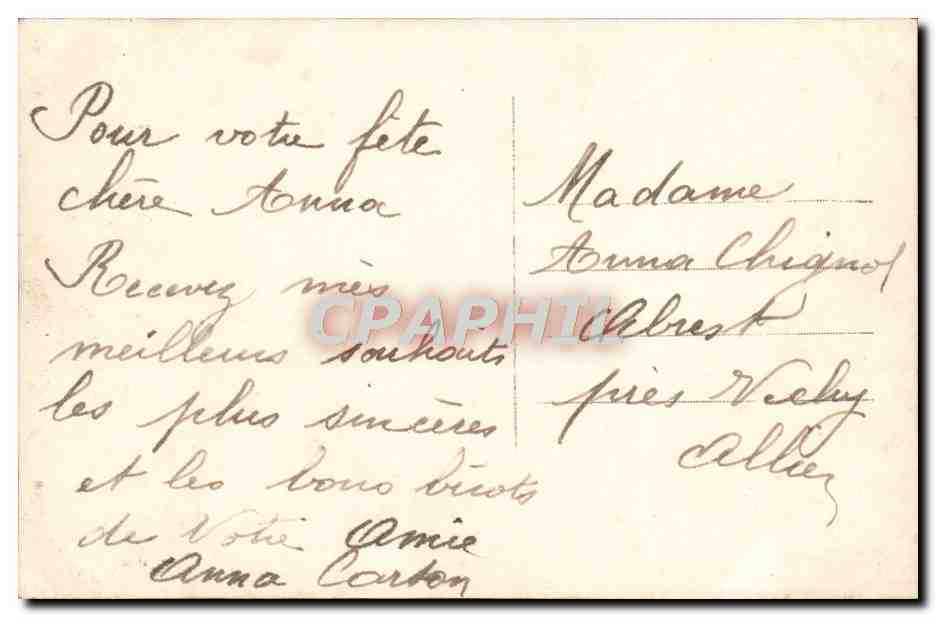 Pour votre fête
chère Anna
Recevez mès
meilleurs souhaits
les plus sincères
et les bons bicots
de Votre Amie
Anna Carton
Madame
Anna Chignol
Abrest
près Vichy
Allier
CPAPHIL